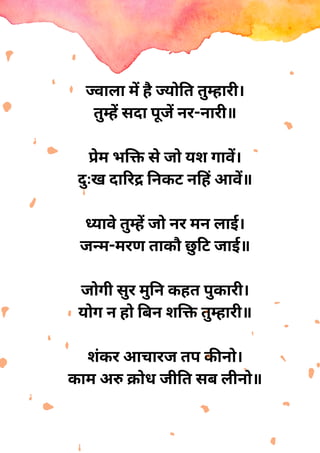 ज्वाला में है ज्योति तुम्हारी।
तुम्हें सदा पूजें नर-नारी॥
प्रेम भक्ति से जो यश गावें।
दुःख दारिद्र निकट नहिं आवें॥
ध्यावे तुम्हें जो नर मन लाई।
जन्म-मरण ताकौ छुटि जाई॥
जोगी सुर मुनि कहत पुकारी।
योग न हो बिन शक्ति तुम्हारी॥
शंकर आचारज तप कीनो।
काम अरु क्रोध जीति सब लीनो॥